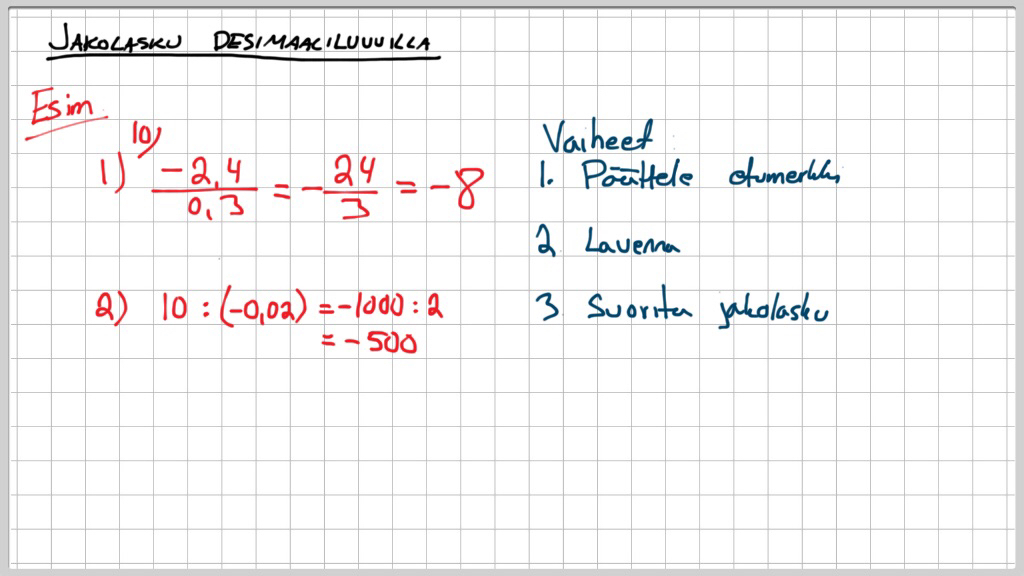 JAKOLASKU DESIMAALILUVUILLA
Esim
10)
1) -2,4 / 0,3 = - 24 / 3 = -8
2) 10 : (-0,02) = -1000 : 2
= - 500
Vaiheet
1. Päättele etumerkki
2 Lavenna
3. Suorita jakolasku